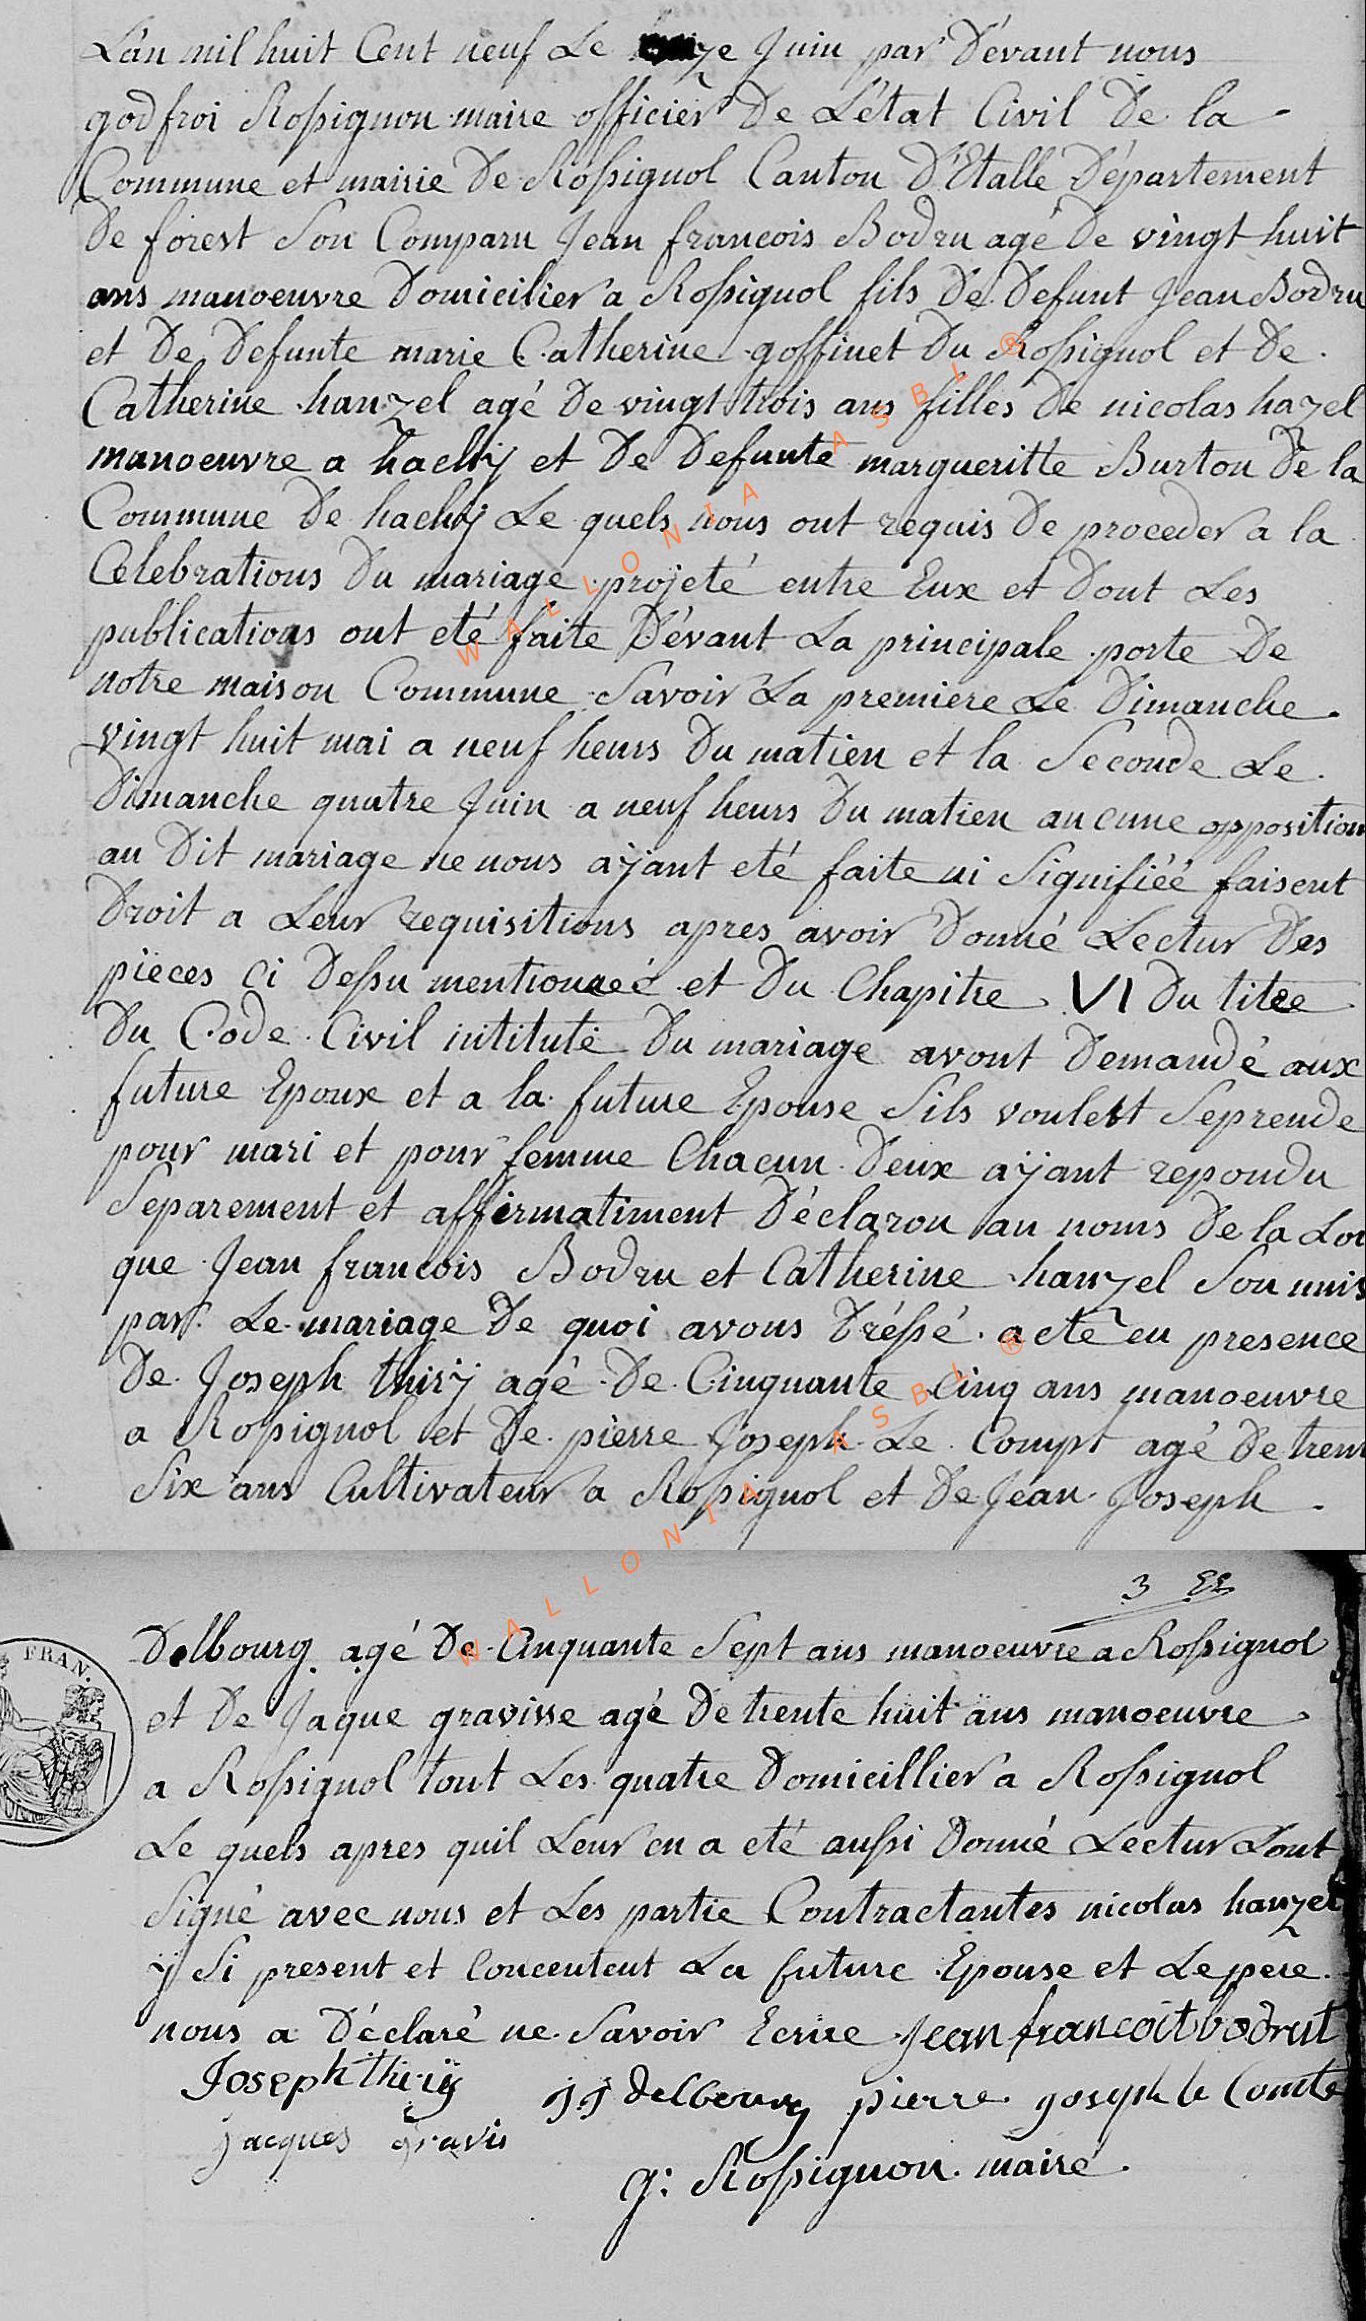 L'an mil huit Cent neuf Le juin par Dévant nous
godfroi Rossignon maire officier De L'état Civil De la
Commune et mairie De Rossignol Canton D'Etalle Département
De forest Son Comparu Jean francois Bodru agé De vingt huit
ans manoeuvre Domicilier a Rossignol fils De Defunt Jean Bodru
et De Defunte marie Catherine goffinet Du Rossignol et De
Catherine hanzel agé De vingt trois ans filles De nicolas hazel
manoeuvre a hachÿ et De Defunte margueritte Burton De la
Commune De hachÿ Le quels nous ont requis De proceder a la
Célebrations Du mariage projeté entre Eux et Dont Les
publications ont eté faite Dévant La principale porte De
notre maison Commune Savoir La premiere Le Dimanche
vingt huit mai a neuf heurs Du matien et la Seconde Le
Dimanche quatre Juin a neuf heurs Du matien aucune opposition
au Dit mariage ne nous aÿant eté faite ni Signifiéé faisent
Droit a Leur requisitions apres avoir Donné Lectur Des
pieces ci Dessu mentionneé et Du Chapitre VI Du titre
Du Code Civil intitulé Du mariage avont Demandé aux
future Epoux et a la future Epouse Sils voulest Seprende
pour mari et pour femme Chacun Deux aÿant repondu
Séparement et affirmatiment Déclaron au noms De la Loi
que Jean francois Bodru et Catherine hanzel Son unis
par Le mariage De quoi avons Dréssé acte en presence
De Joseph thirÿ agé De Cinquante Cinq ans manoeuvre
a Rossignol et De pierre Joseph Le Compt agé De trent
Six ans Cultivateur a Rossignol et De Jean Joseph
3
Delbourg agé De Cinquante Sept ans manoeuvre a Rossignol
et De Jaque gravisse agé De trente huit ans manoeuvre
a Rossignol tout Les quatre Domicillier a Rossignol
Le quels apres quil Leur en a eté aussi Donné Lectur Lont
Signé avec nous et Les partie Contractantes nicolas hanzel
ÿ Si present et Concentent La future Epouse et Le pere
nous a Déclaré ne Savoir Ecrire Jean francoit bodrut
Joseph thirÿ JJ delbourg pierre joseph le Comte
jacques gravis
g: Rossignon maire
FRAN.
WALLONIA ASBL ®
WALLONIA ASBL ®